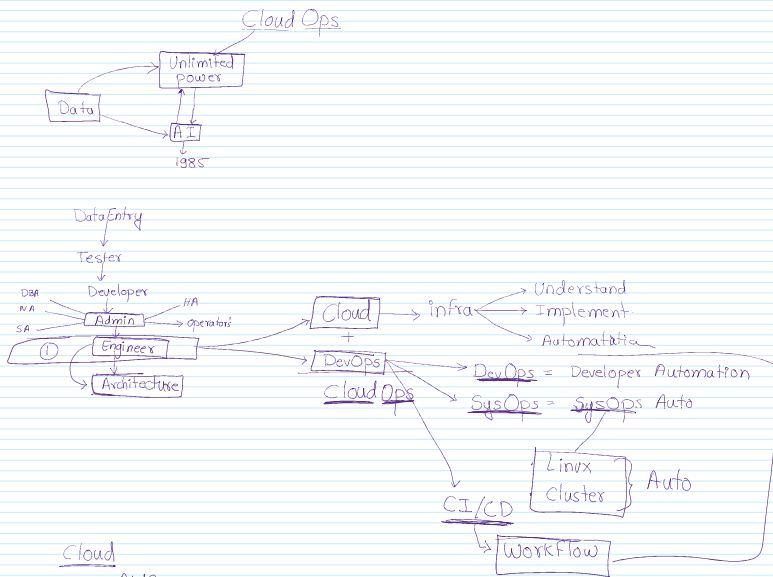 Cloud Ops
Unlimited
power
Data
AI
1985
Data Entry
Tester
Developer
DBA
NA
SA
HA
Admin
operators
①
Engineer
Architecture
Cloud
+
DevOps
Cloud Ops
infra
Understand
Implement.
DevOps = Developer Automation
SysOps = SysOps Auto
Linux
Cluster
Auto
CI/CD
Workflow
Cloud